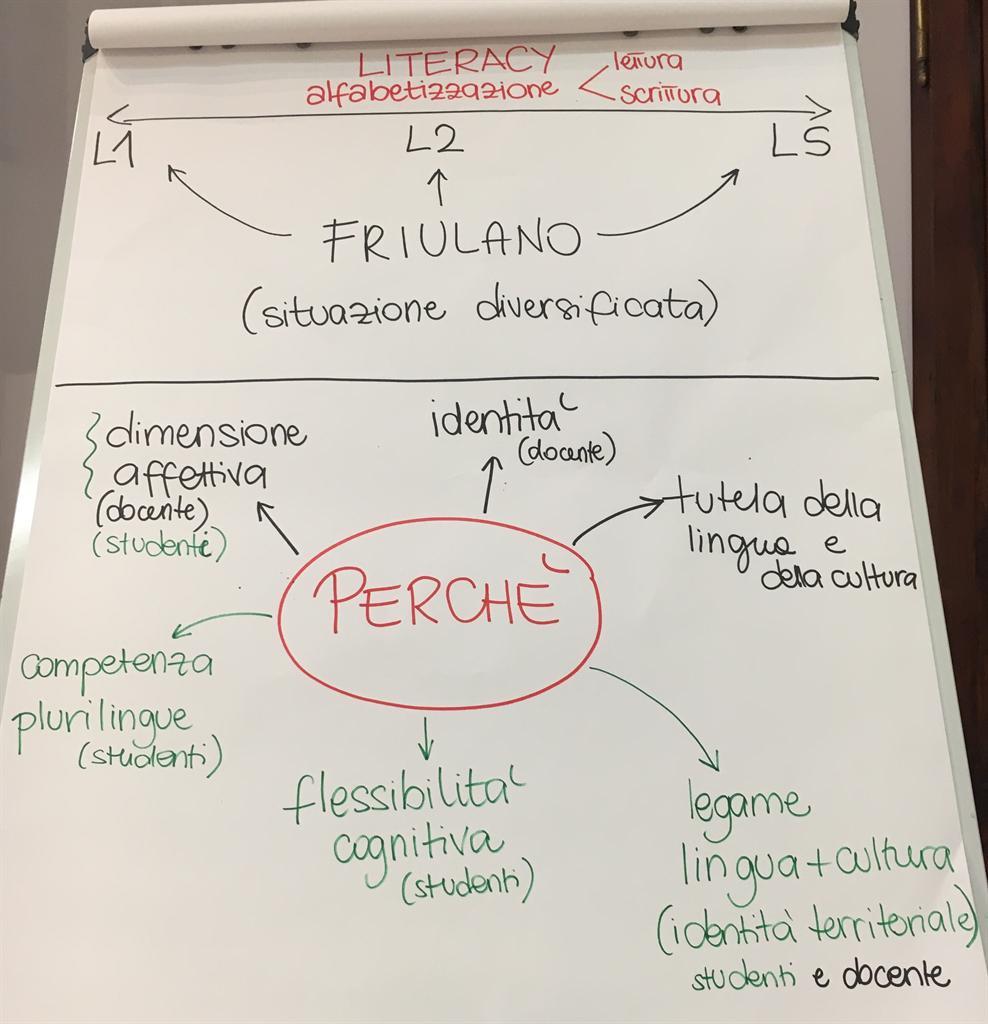 LITERACY
alfabetizzazione
lettura
scrittura
L1
L2
LS
FRIULANO
(situazione diversificata)
dimensione
affettiva
(docente)
(studente)
identità
(docente)
tutela della
lingua e
della cultura
PERCHÈ
competenza
plurilingue
(studenti)
flessibilità
cognitiva
(studenti)
legame
lingua + cultura
(identità territoriale)
studenti e docente